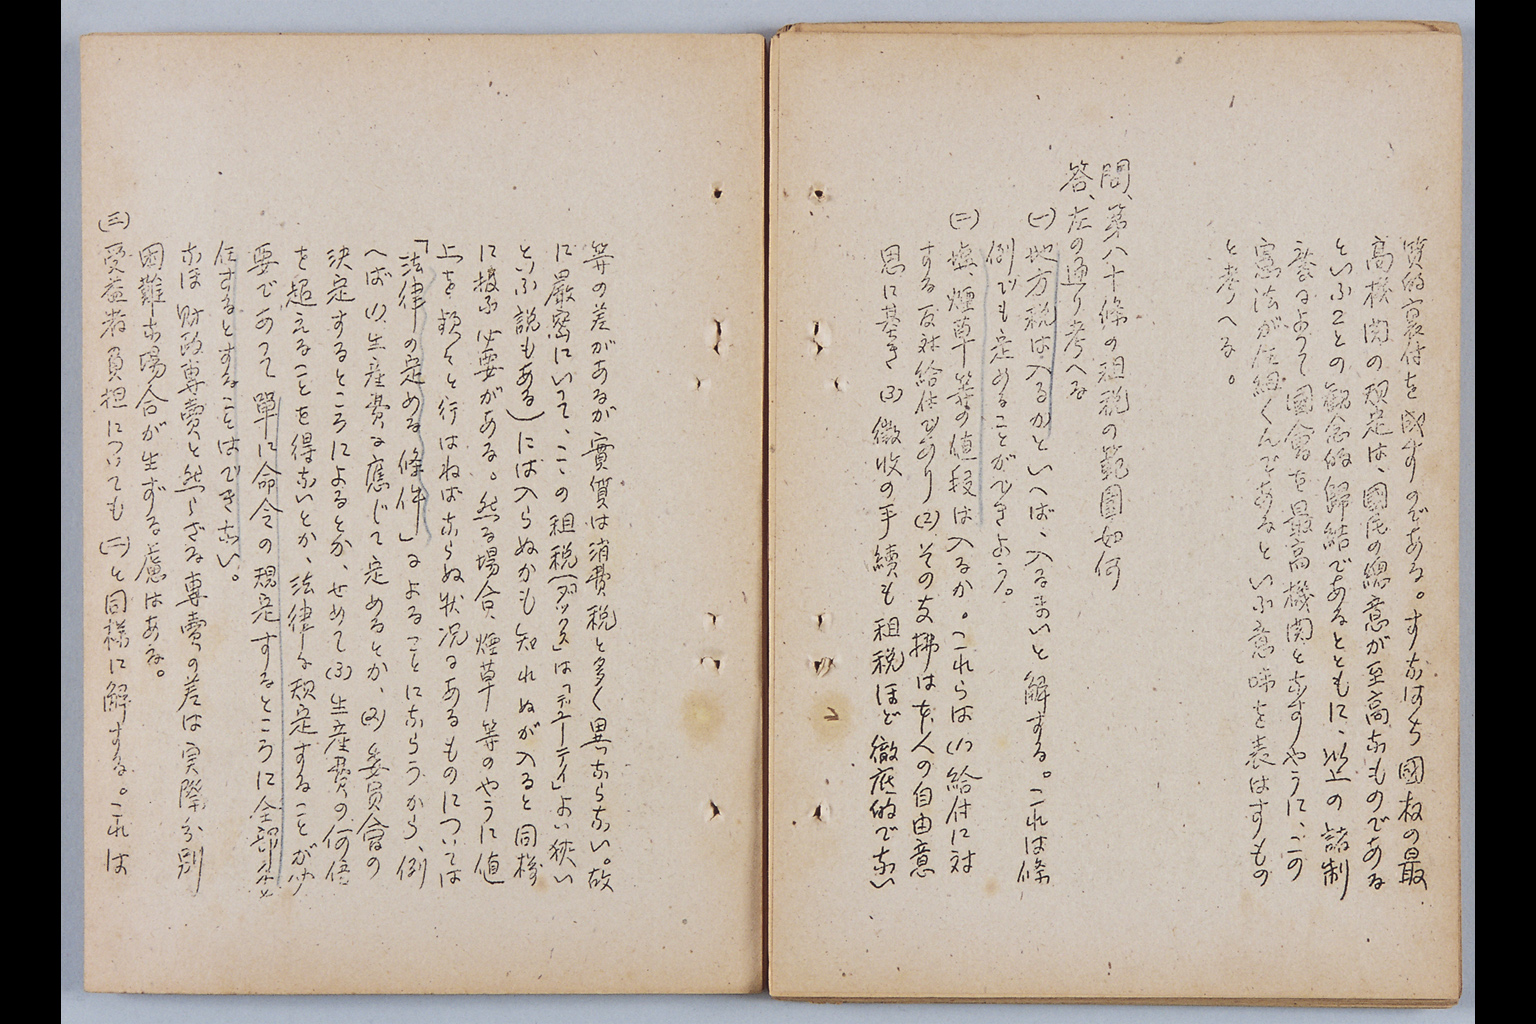 質的裏付を成すのである。すなはち國权の最
高機関の規定は、國民の總意が至高なものである
といふことの観念的歸結であるとともに、以上の諸制
度によつて國會を最高機関となすやうに、この
憲法が仕組くんであるといふ意味を表はすもの
と考へる。
問、第八十條の租税の範圍如何
答、左の通り考へる
(一) 地方税は入るかといへば、入るまいと解する。これは條
例でも定めることができよう。
(二) 塩、煙草等の値段は入るか。これらは(1)給付に対
する反対給付であり(2)その支拂は本人の自由意
思に基き(3)徴收の手續も租税ほど徹底的でない
等の差があるが實質は消費税と多く異ならない。故
に嚴密にいつて、こゝの租税(タックス」は「デューティ」より狭い
といふ説もある)には入らぬかも知れぬが入ると同様
に扱ふ必要がある。然る場合、煙草等のやうに値
上を頻々と行はねばならぬ状況にあるものについては
「法律の定める條件」によることにならうから、例
へば(1)生産費に應じて定めるとか、(2)委員會の
決定するところによるとか、せめて(3)生産費の何倍
を超えることを得ないとか、法律に規定することが必
要であつて單に命令の規定するところに全部委
任するとすることはできない。
なほ財政專賣と然らざる專賣の差は実際分別
困難な場合が生ずる慮はある。
(三) 受益者負担についても(二)と同様に解する。これは